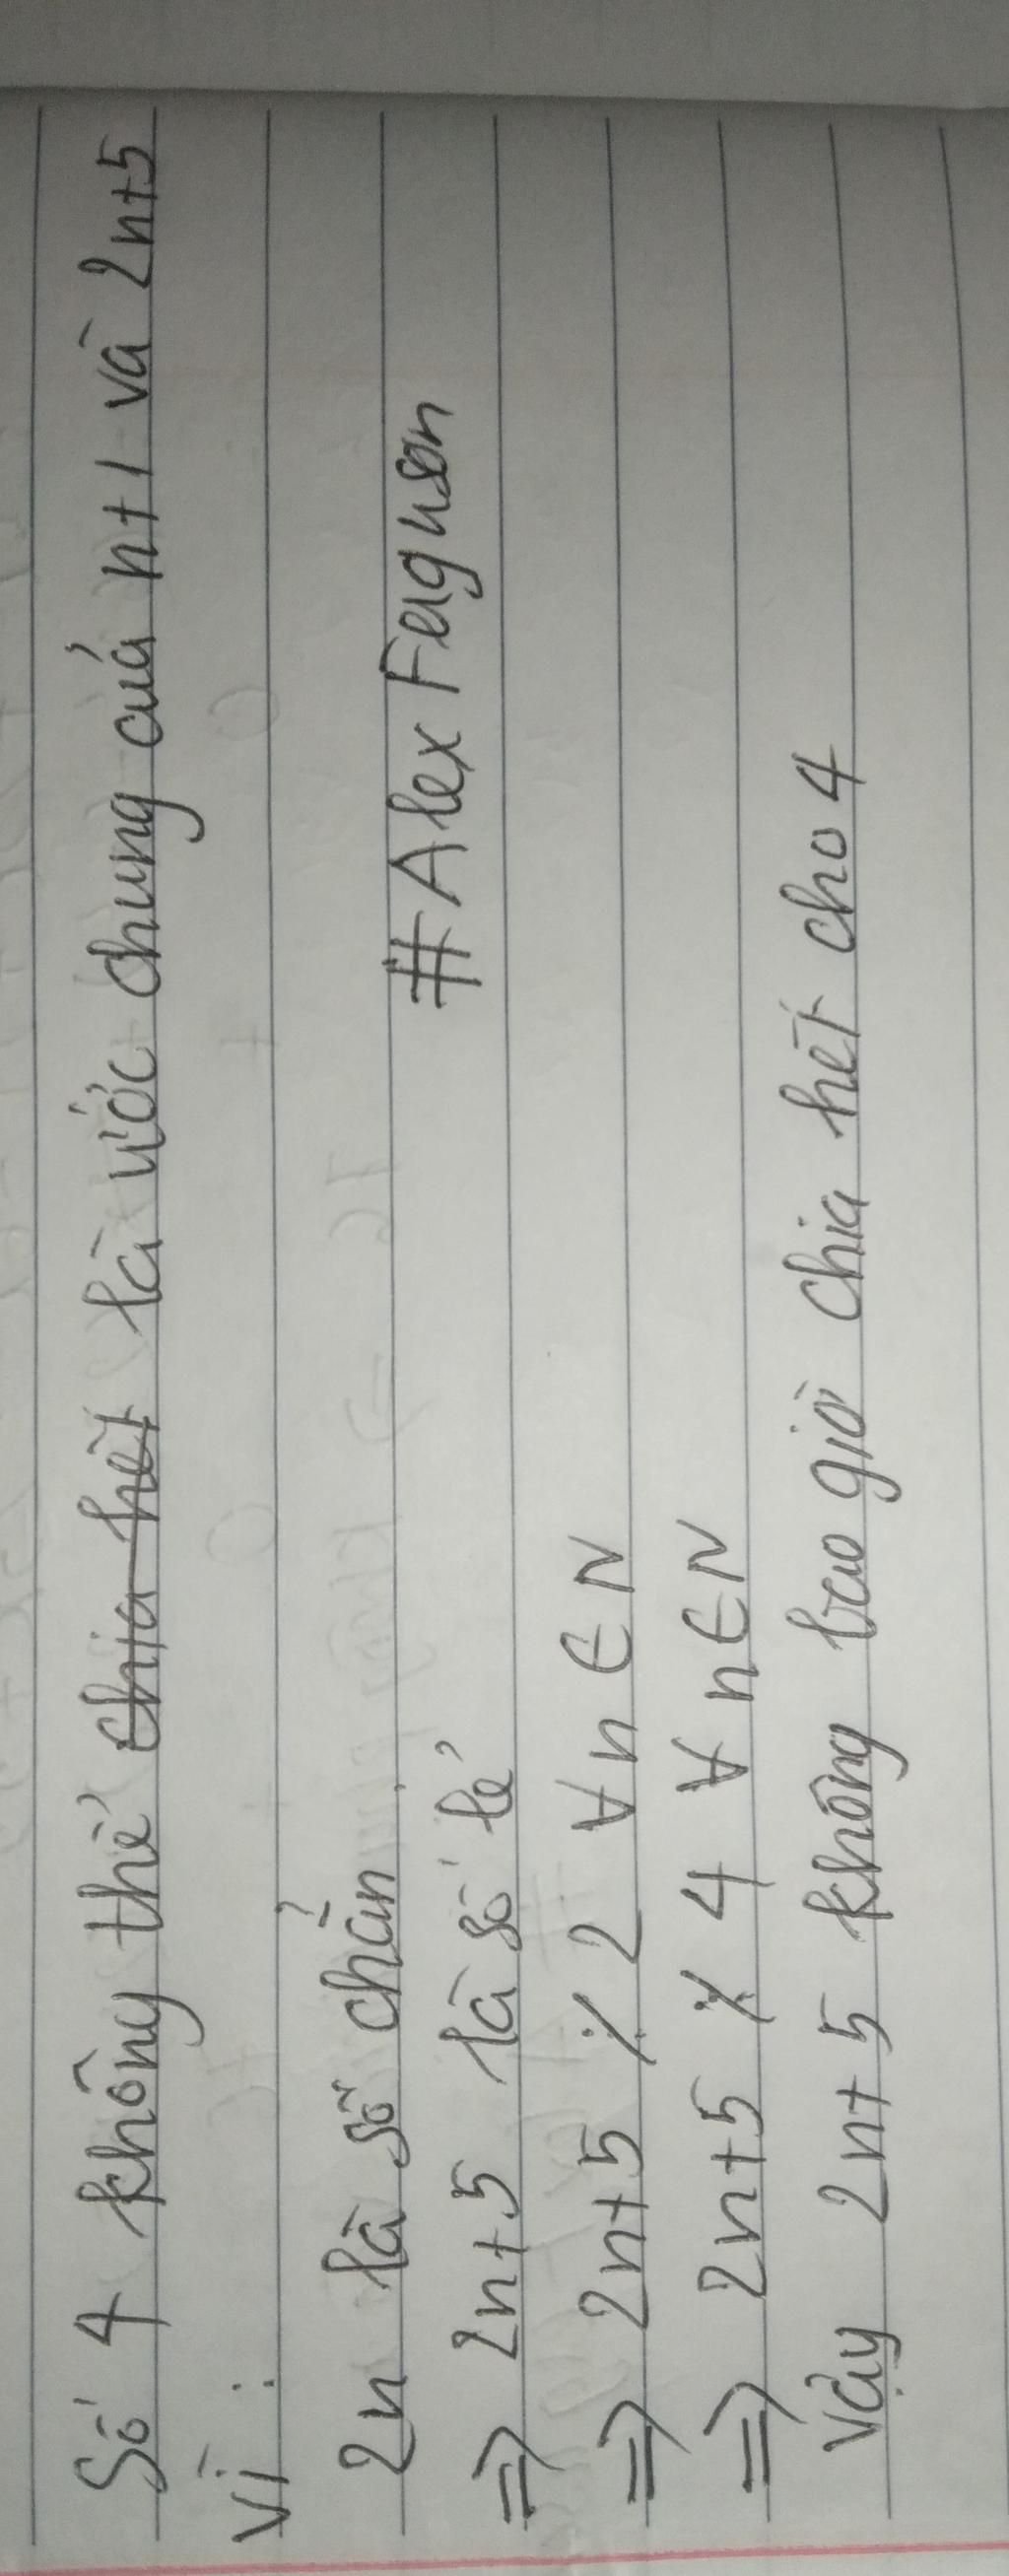 Số 4 không thể chia hết là ước chung của n+1 và 2n+5
Vì:
2n là số chẵn
#AlexFerguson
⇒ 2n+5 là số lẻ
⇒ 2n+5 ⋮̸ 2 ∀n∈N
⇒ 2n+5 ⋮̸ 4 ∀n∈N
Vậy 2n+5 không bao giờ chia hết cho 4